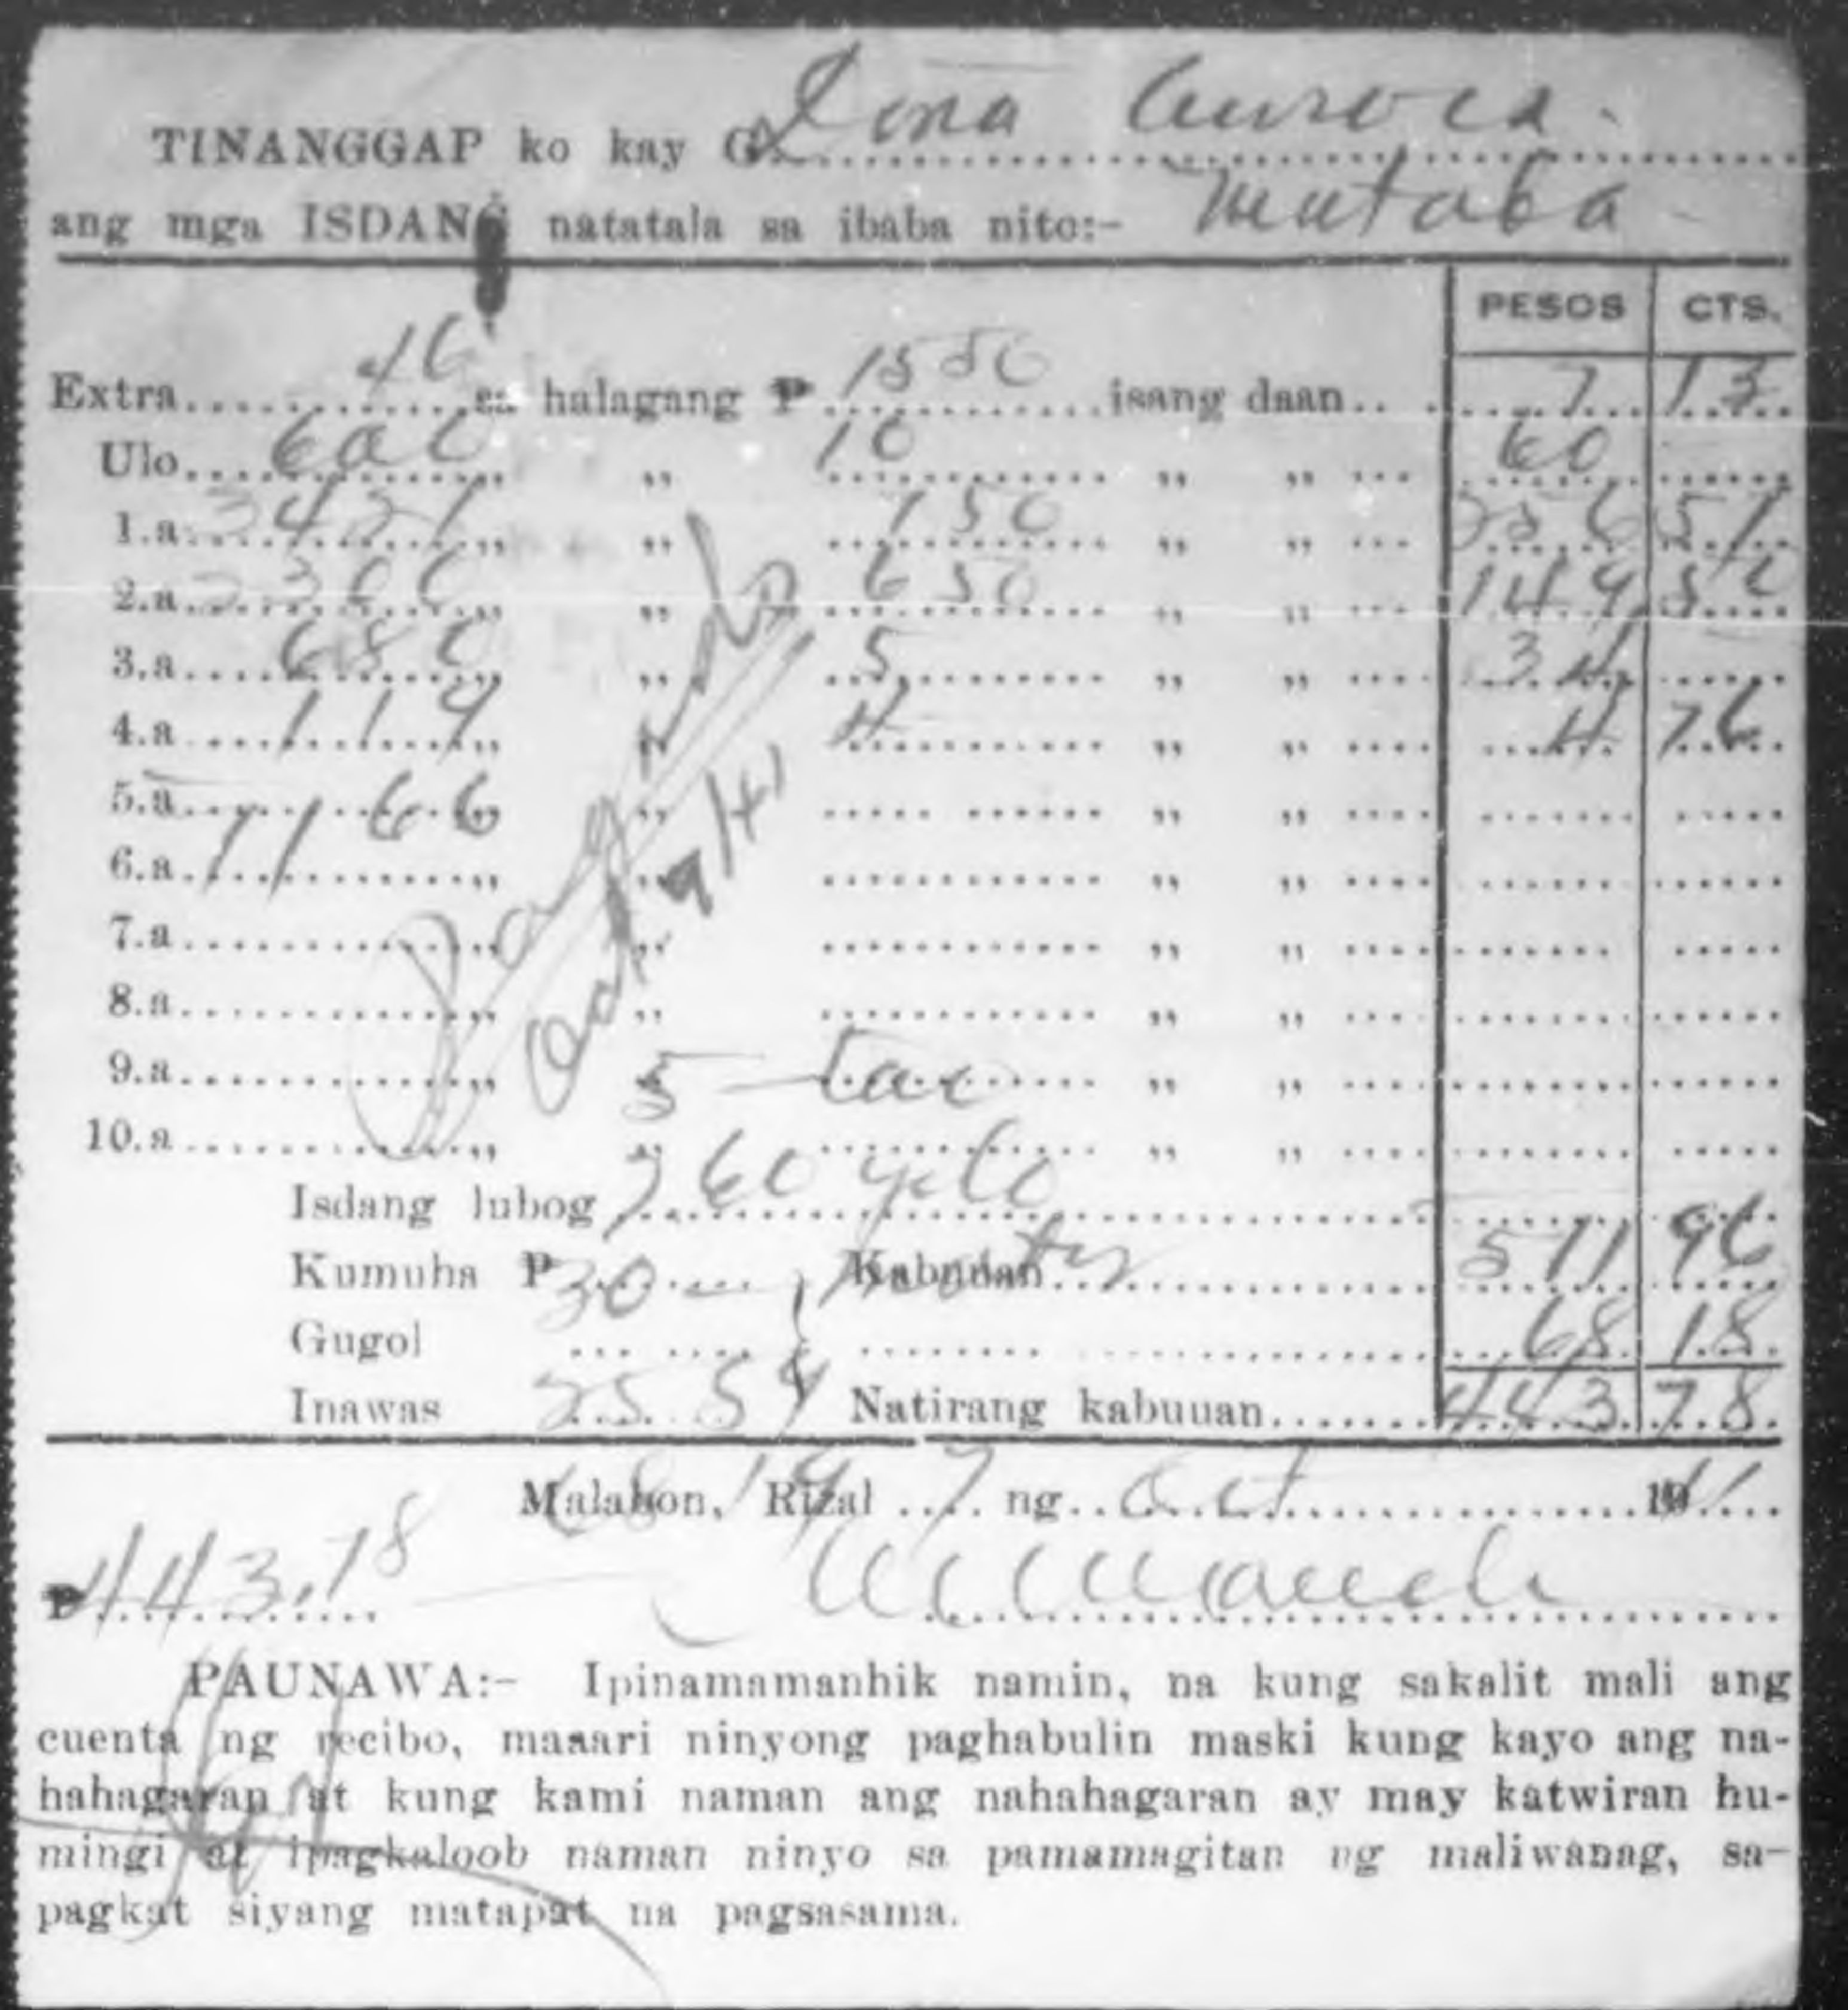 TINANGGAP ko kay G. Dona Aurora.
ang mga ISDANG natatala sa ibaba nito:- Mutaba
PESOS CTS.
Extra 46 sa halagang P 1550 isang daan 7 13
Ulo 600 ,, ,, 10 ,, ,, 60
1.a 3421 ,, ,, 750 ,, ,, 256 51
2.a 2300 ,, ,, 650 ,, ,, 149 52
3.a 680 ,, ,, 5 ,, ,, 34
4.a 119 ,, ,, 4 ,, ,, 4 76
5.a ,, ,, ,, ,,
7166
6.a ,, ,, ,, ,,
7.a ,, ,, ,, ,,
8.a ,, ,, ,, ,,
9.a ,, ,, ,, ,,
5 —
10.a ,, ,, ,, ,,
Oct 7/41
Isdang lubog 760 yelo
Kumuha P 30 — Kabuuan 511 96
Gugol 68 18
Inawas 25 59 Natirang kabuuan 443 78
Malabon, Rizal 7 ng Oct 1941
68 19
P 443.78
PAUNAWA:- Ipinamamanhik namin, na kung sakalit mali ang
cuenta ng recibo, maaari ninyong paghabulin maski kung kayo ang na-
hahagaran at kung kami naman ang nahahagaran ay may katwiran hu-
mingi at ipagkaloob naman ninyo sa pamamagitan ng maliwanag, sa-
pagkat siyang matapat na pagsasama.